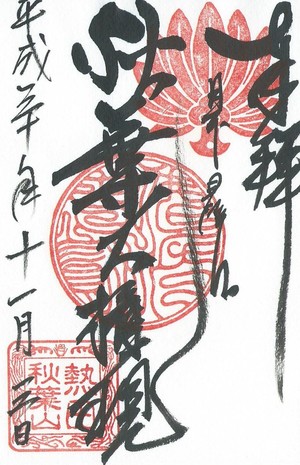 奉拝
秋葉大権現
平成二十年十一月三日
熱田
秋葉山